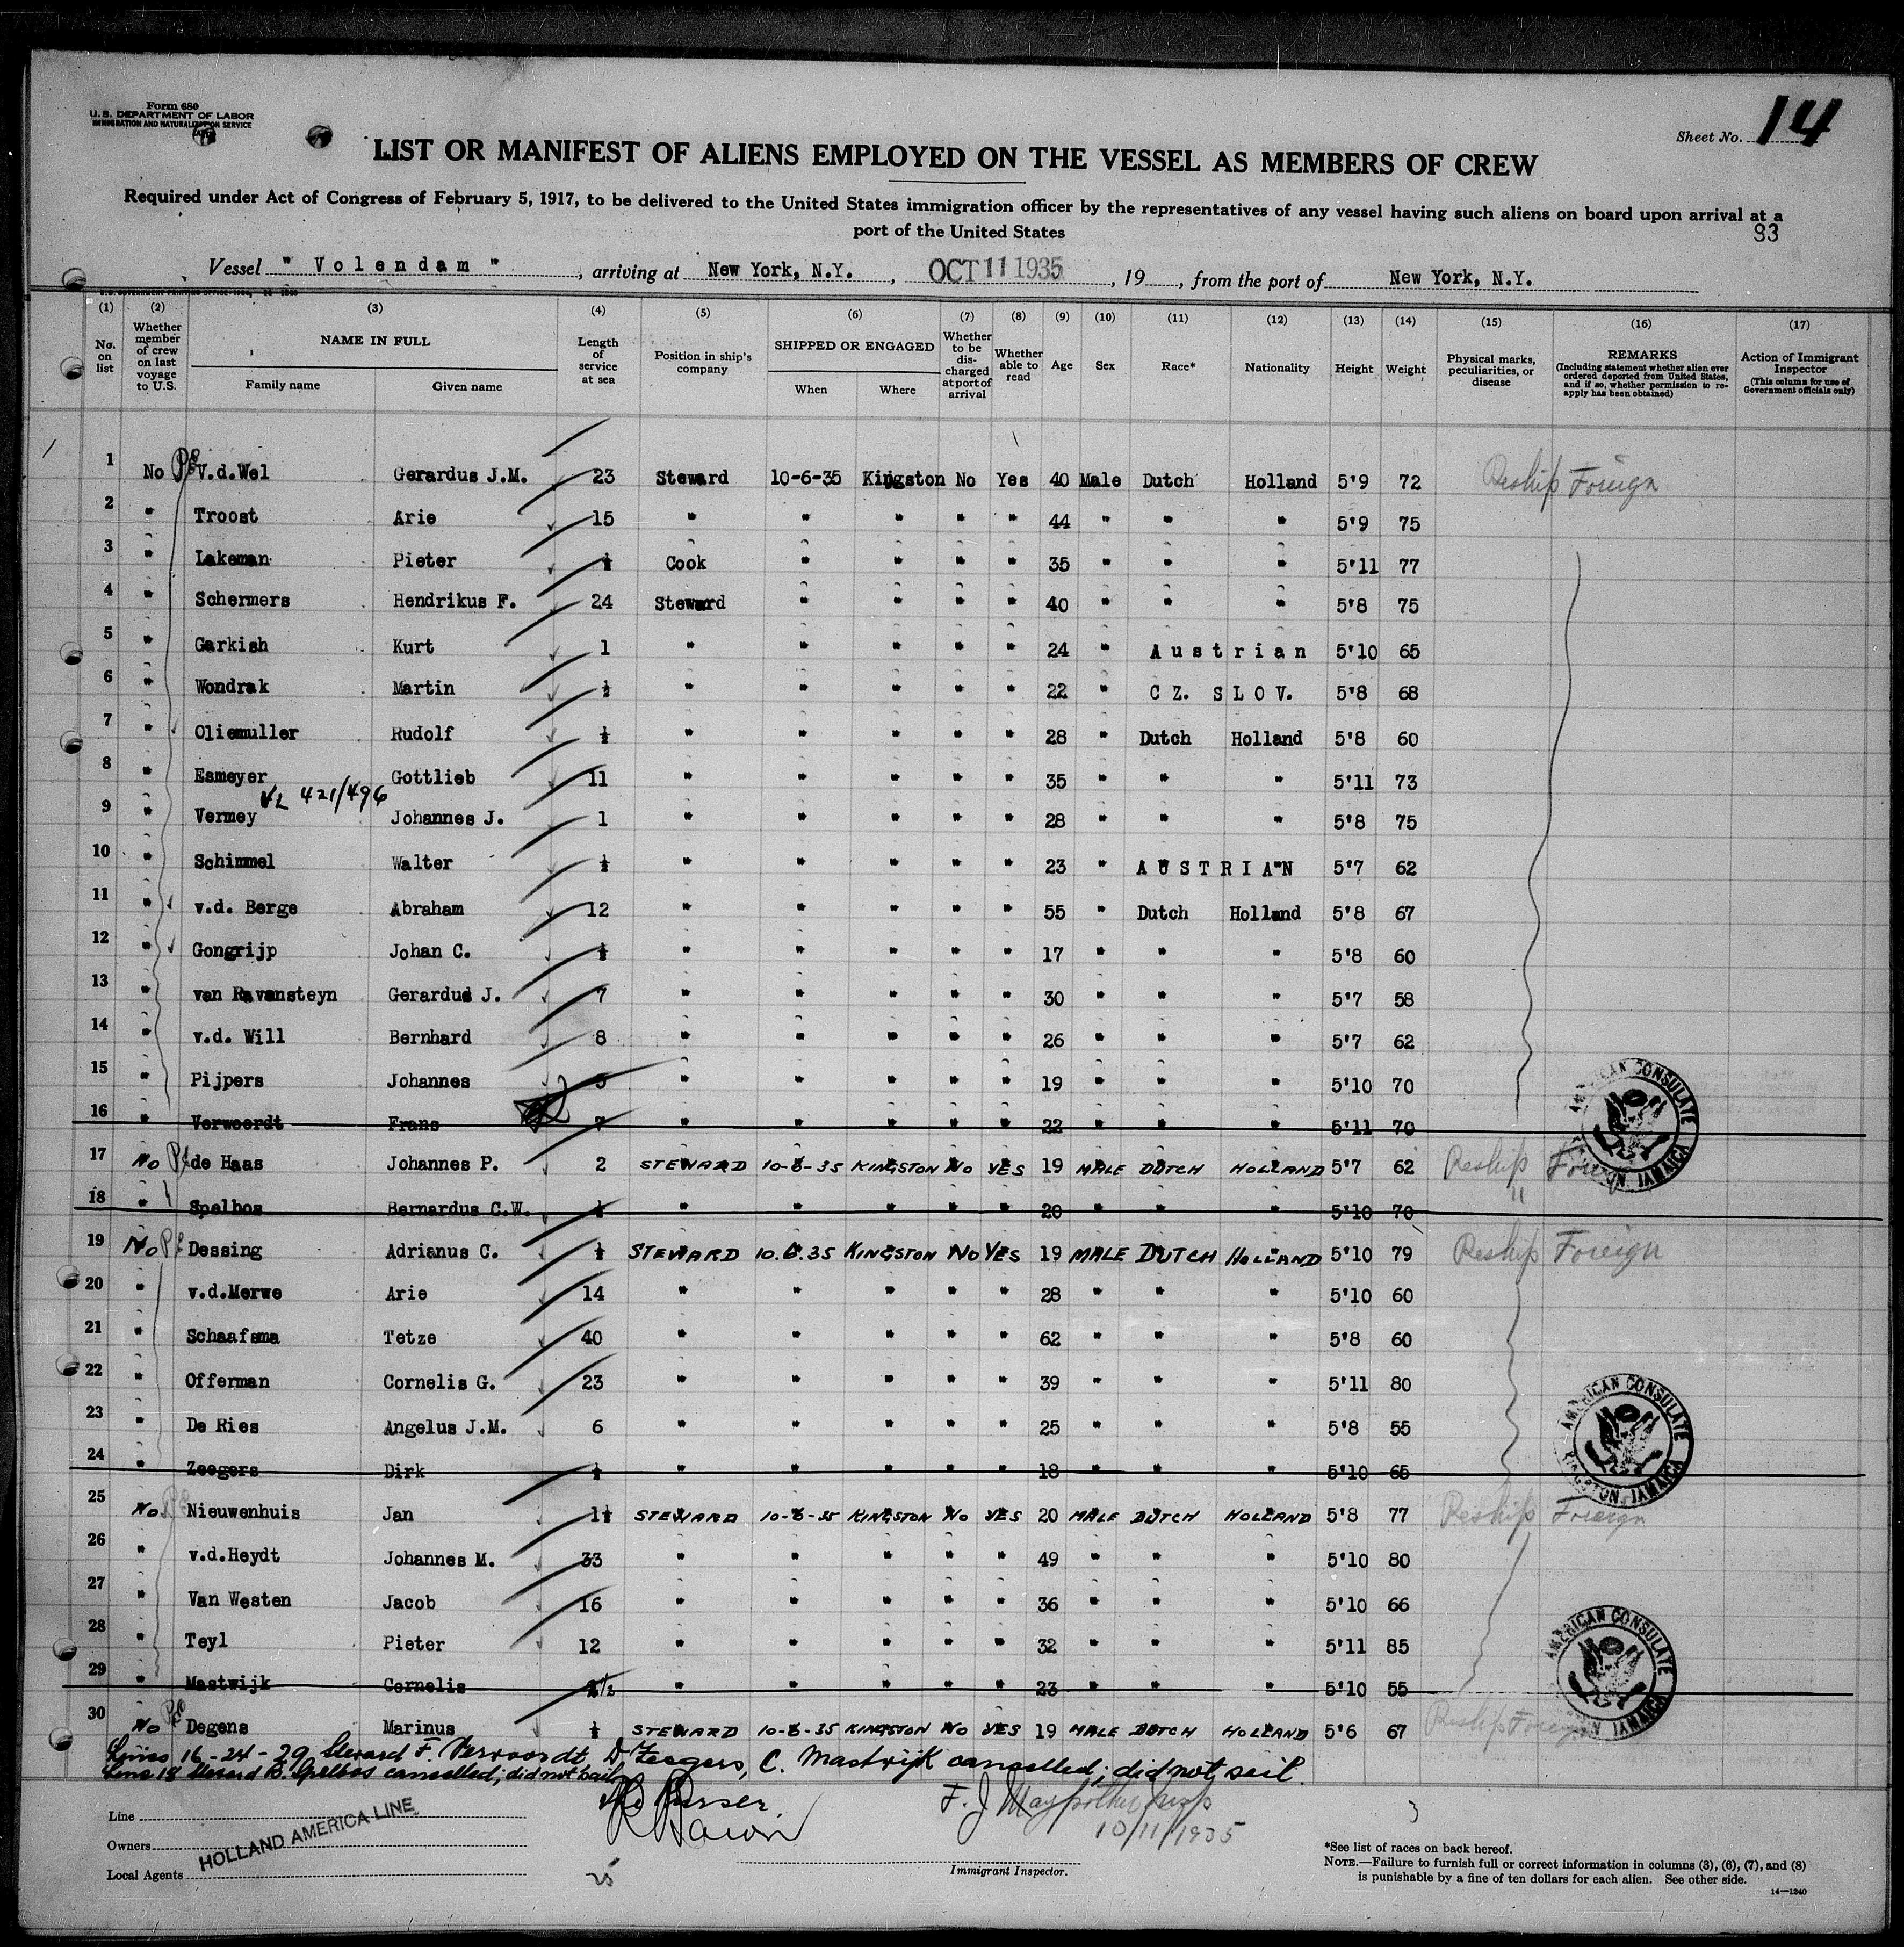 Form 680
U.S. DEPARTMENT OF LABOR
IMMIGRATION AND NATURALIZATION SERVICE
Sheet No. 14
LIST OR MANIFEST OF ALIENS EMPLOYED ON THE VESSEL AS MEMBERS OF CREW
Required under Act of Congress of February 5, 1917, to be delivered to the United States immigration officer by the representatives of any vessel having such aliens on board upon arrival at a
port of the United States
93
Vessel " Volendam " , arriving at New York, N.Y. , OCT 11 1935 , 19 , from the port of New York, N.Y.
(1) (2) (3) (4) (5) (6) (7) (8) (9) (10) (11) (12) (13) (14) (15) (16) (17)
No. on list Whether member of crew on last voyage to U.S. NAME IN FULL Family name Given name Length of service at sea Position in ship's company SHIPPED OR ENGAGED When Where Whether to be discharged at port of arrival Whether able to read Age Sex Race* Nationality Height Weight Physical marks, peculiarities, or disease REMARKS (Including statement whether alien ever ordered deported from United States, and if so, whether permission to reapply has been obtained) Action of Immigrant Inspector (This column for use of Government officials only)
1 No V.d.Wel Gerardus J.M. 23 Steward 10-6-35 Kingston No Yes 40 Male Dutch Holland 5'9 72 Reship Foreign
2 " Troost Arie 15 " " " " " 44 " " " 5'9 75
3 " Lakeman Pieter ½ Cook " " " " 35 " " " 5'11 77
4 " Schermers Hendrikus F. 24 Steward " " " " 40 " " " 5'8 75
5 " Garkish Kurt 1 " " " " " 24 " Austrian 5'10 65
6 " Wondrak Martin ½ " " " " " 22 " CZ. SLOV. 5'8 68
7 " Oliemuller Rudolf ½ " " " " " 28 " Dutch Holland 5'8 60
8 " Esmeyer Gottlieb 11 " " " " " 35 " " " 5'11 73
421/496
9 " Vermey Johannes J. 1 " " " " " 28 " " " 5'8 75
10 " Schimmel Walter ½ " " " " " 23 " AUSTRIAN 5'7 62
11 " v.d. Berge Abraham 12 " " " " " 55 " Dutch Holland 5'8 67
12 " Gongrijp Johan C. ½ " " " " " 17 " " " 5'8 60
13 " van Ravensteyn Gerardus J. 7 " " " " " 30 " " " 5'7 58
14 " v.d. Will Bernhard 8 " " " " " 26 " " " 5'7 62
15 " Pijpers Johannes " " " " " 19 " " " 5'10 70
16 " Verwoerdt Frans 7 " " " " " 22 " " " 5'11 70
17 No de Haas Johannes P. 2 STEWARD 10-6-35 KINGSTON No YES 19 MALE DUTCH HOLLAND 5'7 62 Reship Foreign
18 " Spelbos Bernardus C.W. ½ " " " " " 20 " " " 5'10 70 "
19 No Dessing Adrianus C. ½ STEWARD 10.6.35 KINGSTON No YES 19 MALE DUTCH HOLLAND 5'10 79 Reship Foreign
20 " v.d.Merwe Arie 14 " " " " " 28 " " " 5'10 60
21 " Schaafsma Tetze 40 " " " " " 62 " " " 5'8 60
22 " Offerman Cornelis G. 23 " " " " " 39 " " " 5'11 80
23 " De Ries Angelus J.M. 6 " " " " " 25 " " " 5'8 55
24 " Zeegers Dirk ½ " " " " " 18 " " " 5'10 65
25 No Nieuwenhuis Jan 1½ STEWARD 10-6-35 KINGSTON No YES 20 MALE DUTCH HOLLAND 5'8 77 Reship Foreign
26 " v.d.Heydt Johannes M. 33 " " " " " 49 " " " 5'10 80
27 " Van Westen Jacob 16 " " " " " 36 " " " 5'10 66
28 " Teyl Pieter 12 " " " " " 32 " " " 5'11 85
29 " Mastwijk Cornelis 1/2 " " " " " 23 " " " 5'10 55
30 No Degens Marinus ½ STEWARD 10-6-35 KINGSTON No YES 19 MALE DUTCH HOLLAND 5'6 67 Reship Foreign
AMERICAN CONSULATE KINGSTON, JAMAICA
AMERICAN CONSULATE KINGSTON, JAMAICA
AMERICAN CONSULATE KINGSTON, JAMAICA
Lines 16-24-29 Steward F. Verwoerdt, D. Zeegers, C. Mastwijk cancelled; did not sail.
Line 18 Steward B. Spelbos cancelled; did not sail
The Purser.
10/11/1935
Line
Owners HOLLAND AMERICA LINE
Local Agents
25
Immigrant Inspector.
3
*See list of races on back hereof.
NOTE.—Failure to furnish full or correct information in columns (3), (6), (7), and (8)
is punishable by a fine of ten dollars for each alien. See other side.
14—1240